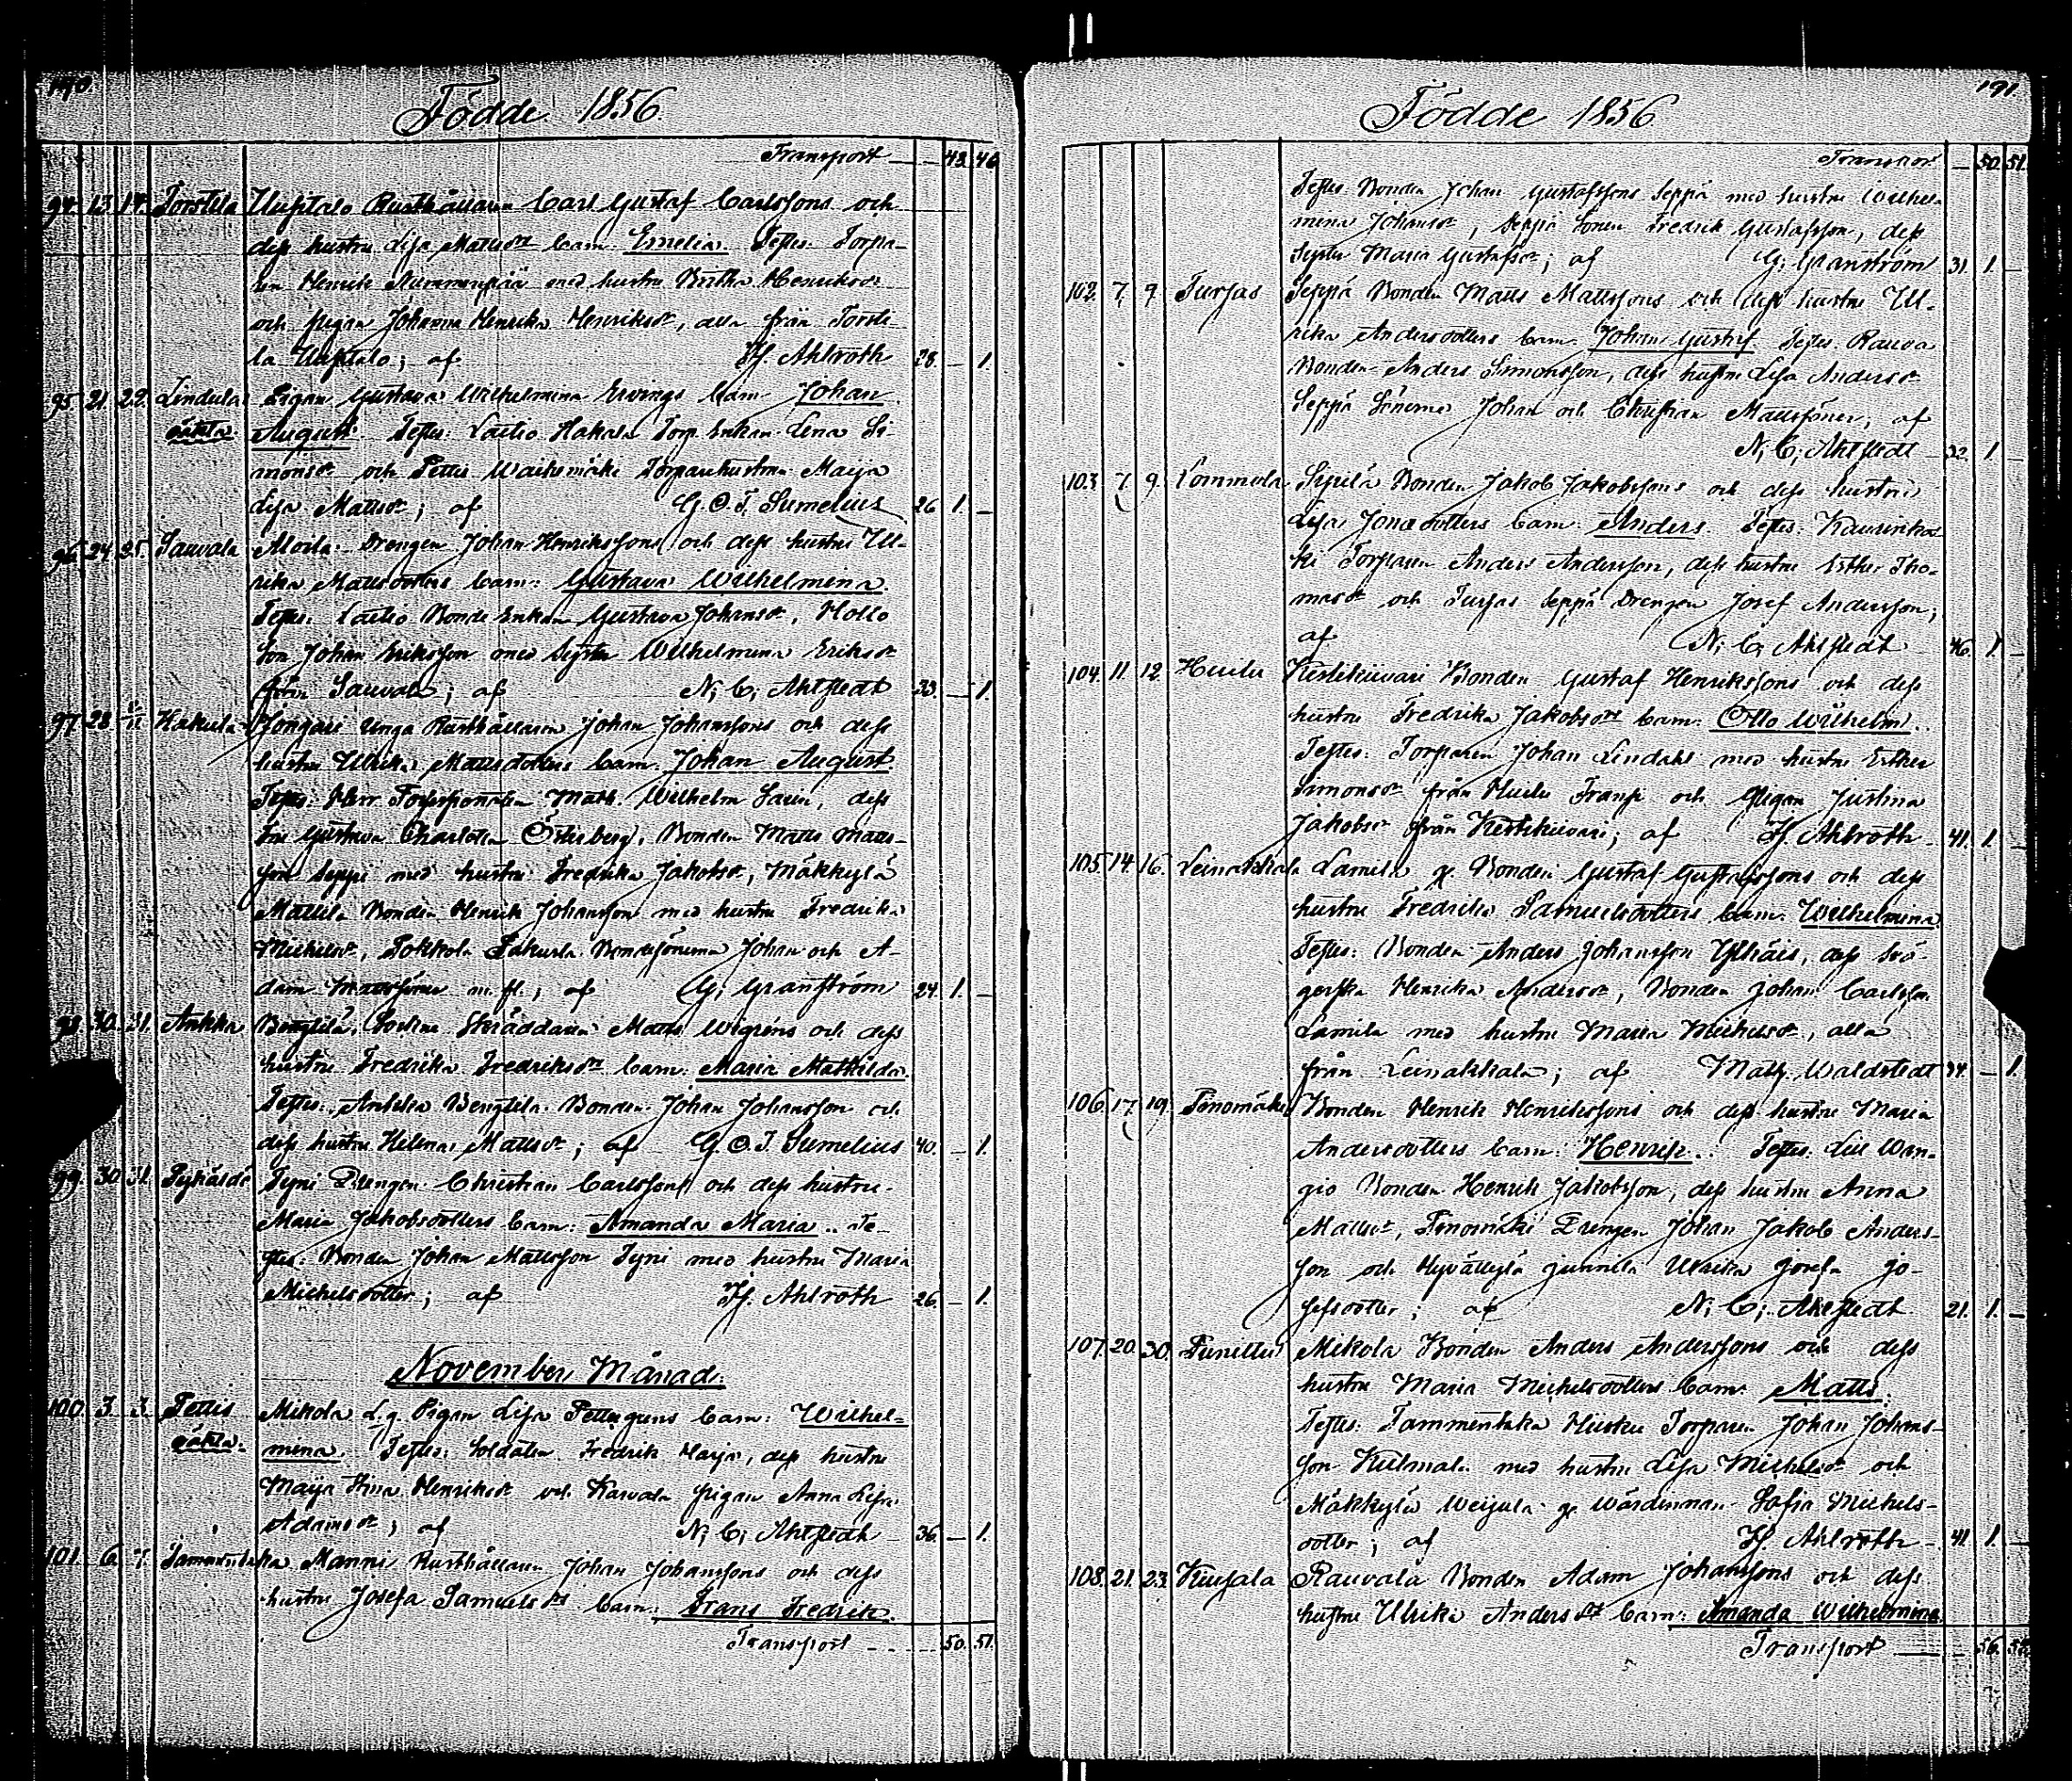 190.
Födde 1856.
Transport — 43. 46
94. 13. 14. Torstila Uusitalo Rusthållaren Carl Gustaf Carlssons och
dess hustru Lisa Mattsdr barn: Emelia. Testes: Torpa-
ren Henrik Nummenpää med hustru Henriksdr
och pigan Johanna Henrika Henriksdr, alla från Torsti-
la Uusitalo; af Hj. Ahlroth 28. — 1.
95. 21. 22. Lindula Pigan Gustava Wilhelmina Ervings barn Johan
oäkta August. Testes: Laitio Hakala Torp. Enkan Lena Si-
monsdr och Pettis Torparehustrun Maija
Lisa Mattsdr; af G. O. T. Sumelius 26 1. —
96. 24. 25. Sauvala Moila Drengen Johan Henrikssons och dess hustru Ul-
rika Mattsdotters barn: Gustava Wilhelmina.
Testes: Laitio Bonde Enkan Gustava Johansdr, Hollo
Son Johan Eriksson med Syster Wilhelmina Eriksdr
från Sauvala; af N. C. Ahlstedt 33. — 1.
97. 28. Hakula Jongari Unga Rusthållaren Johan Johanssons och dess
hustru Ulrika Mattsdotters barn: Johan August.
Testes: Herr Math. Wilhelm Sarin, dess
Fru Gustava Charlotta Österberg, Bonden Matts Matts-
son Seppi med hustru Fredrika Jakobsdr, Mäkkylä
Mattila Bonden Henrik Johansson med hustru Fredrika
Michelsdr, Bondesönerna Johan och A-
dam Mattssöner m. fl.; af G. Granström 24. 1. —
98. 30. 31. Ankka Bengtilä, Sockne Skräddaren Matts Wigrens och dess
hustru Fredrika Fredriksdrs barn: Maria Mathilda.
Testes: Bengtila Bonden Johan Johansson och
dess hustru Helena Mattsdr; af G. O. T. Sumelius 40. — 1.
99. 30. 31. Tyni Drengen Christian Carlssons och dess hustru
Maria Jakobsdotters barn: Amanda Maria.. Te-
stes: Bonden Johan Mattsson Tyni med hustru Maria
Michelsdotter; af Hj. Ahlroth 26. — 1.
November Månad.
100. 3. 3. Pettis Mikola L. g. Pigan Lisa Pettersgrens barn: Wilhel-
oäkta. mina. Testes: Soldaten Fredrik Harja, dess hustru
Maija Stina Henriksdr och pigan Anna Lisa
Adamsdr; af N. C. Ahlstedt 36. — 1.
101. 6. 7. Tammentaka Manni Rusthållaren Johan Johanssons och dess
hustru Josefa Samuelsdrs barn: Frans Fredrik.
Transport — 50. 51.
191.
Födde 1856
Transport — 50. 51.
Testes: Bonden Johan Gustafssons Seppä med hustru Wilhel-
mina Johansdr, Seppä Sonen Fredrik Gustafsson, dess
Syster Maria Gustafsdr; af G. Granström 31. 1. —
102. 7. 9. Tursas Seppä Bonden Matts Mattssons och dess hustru Ul-
rika Andersdotters barn: Johan Gustaf. Testes: Rauva
Bonden Anders Simonsson, dess hustru Lisa Andersdr
Seppä Sönerna Johan och Christian Mattssöner; af
N. C. Ahlstedt 32. 1. —
103. 7. 9. Lommola Sipilä Bonden Jakob Jakobssons och dess hustru
Lisa Jonædotters barn: Anders. Testes: Kaurinkos-
ki Torparen Anders Andersson, dess hustru Esther Tho-
masdr och Tursas Seppä Drengen Josef Andersson;
af N. C. Ahlstedt 46. 1. —
104. 11. 12. Huilu Kestikievari Bonden Gustaf Henrikssons och dess
hustru Fredrika Jakobsdrs barn: Otto Wilhelm..
Testes: Torparen Johan Lindahl med hustru Esther
Simonsdr från Huilu Transs och Pigan Justina
Jakobsdr från Kestikievari; af Hj. Ahlroth 41. 1. —
105. 14. 16. Leinakkala Lamila g. Bonden Gustaf Gustafssons och dess
hustru Fredrika Samuelsdotters barn: Wilhelmina
Testes: Bonden Anders Johansson Ylhäis, dess Svä-
gerska Henrika Andersdr, Bonden Johan Carlsson
Lamila med hustru Maria Michelsdr, alla
från Leinakkala; af Math. Waldstedt 34. — 1.
106. 17. 19. Pinomäki Bonden Henrik Henrikssons och dess hustru Maria
Andersdotters barn: Henrik.. Testes: Lill Wan-
gio Bonden Henrik Jakobsson, dess hustru Anna
Mattsdr, Pinomäki Drengen Johan Jakob Anders-
son och Hyvällylä Junnila Ulrika Josefa Jo-
sefsdotter; af N. C. Ahlstedt 21. 1. —
107. 20. 30. Punittu Mikola Bonden Anders Anderssons och dess
hustru Maria Michelsdotters barn: Matts.
Testes: Tammentaka Torparen Johan Johans-
son Kulmala med hustru Lisa Michelsdr och
Mäkkylä Weijula ge Wärdinnan Sofia Michels-
dotter; af Hj. Ahlroth 41. 1. —
108. 21. 23. Kiusala Rauvala Bonden Adam Johanssons och dess
hustru Ulrika Andersdrs barn: Amanda Wilhelmina
Transport — 56. 52.